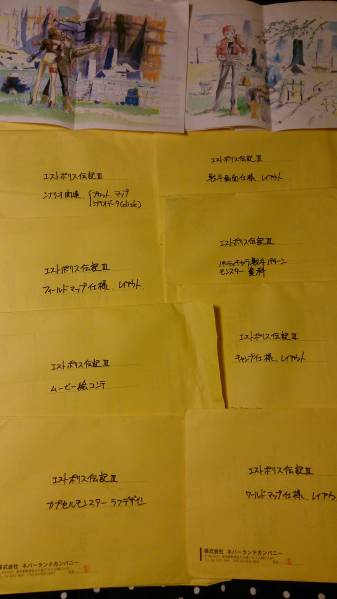 エストポリス伝記III
シナリオ関連 プロット マップ
シナリオデータ(disk)
エストポリス伝記III
戦斗画面仕様、レイアウト
エストポリス伝記III
フィールドマップ仕様、レイアウト.
エストポリス伝記III
パーティキャラ戦斗パターン
モンスター資料
エストポリス伝記III
ムービー絵コンテ
エストポリス伝記III
キャンプ仕様、レイアウト
エストポリス伝記III
カプセルモンスター ラフデザイン
エストポリス伝記III
ワールドマップ仕様、レイアウト
株式会社 ネバーランドカンパニー
株式会社 ネバーランドカンパニー